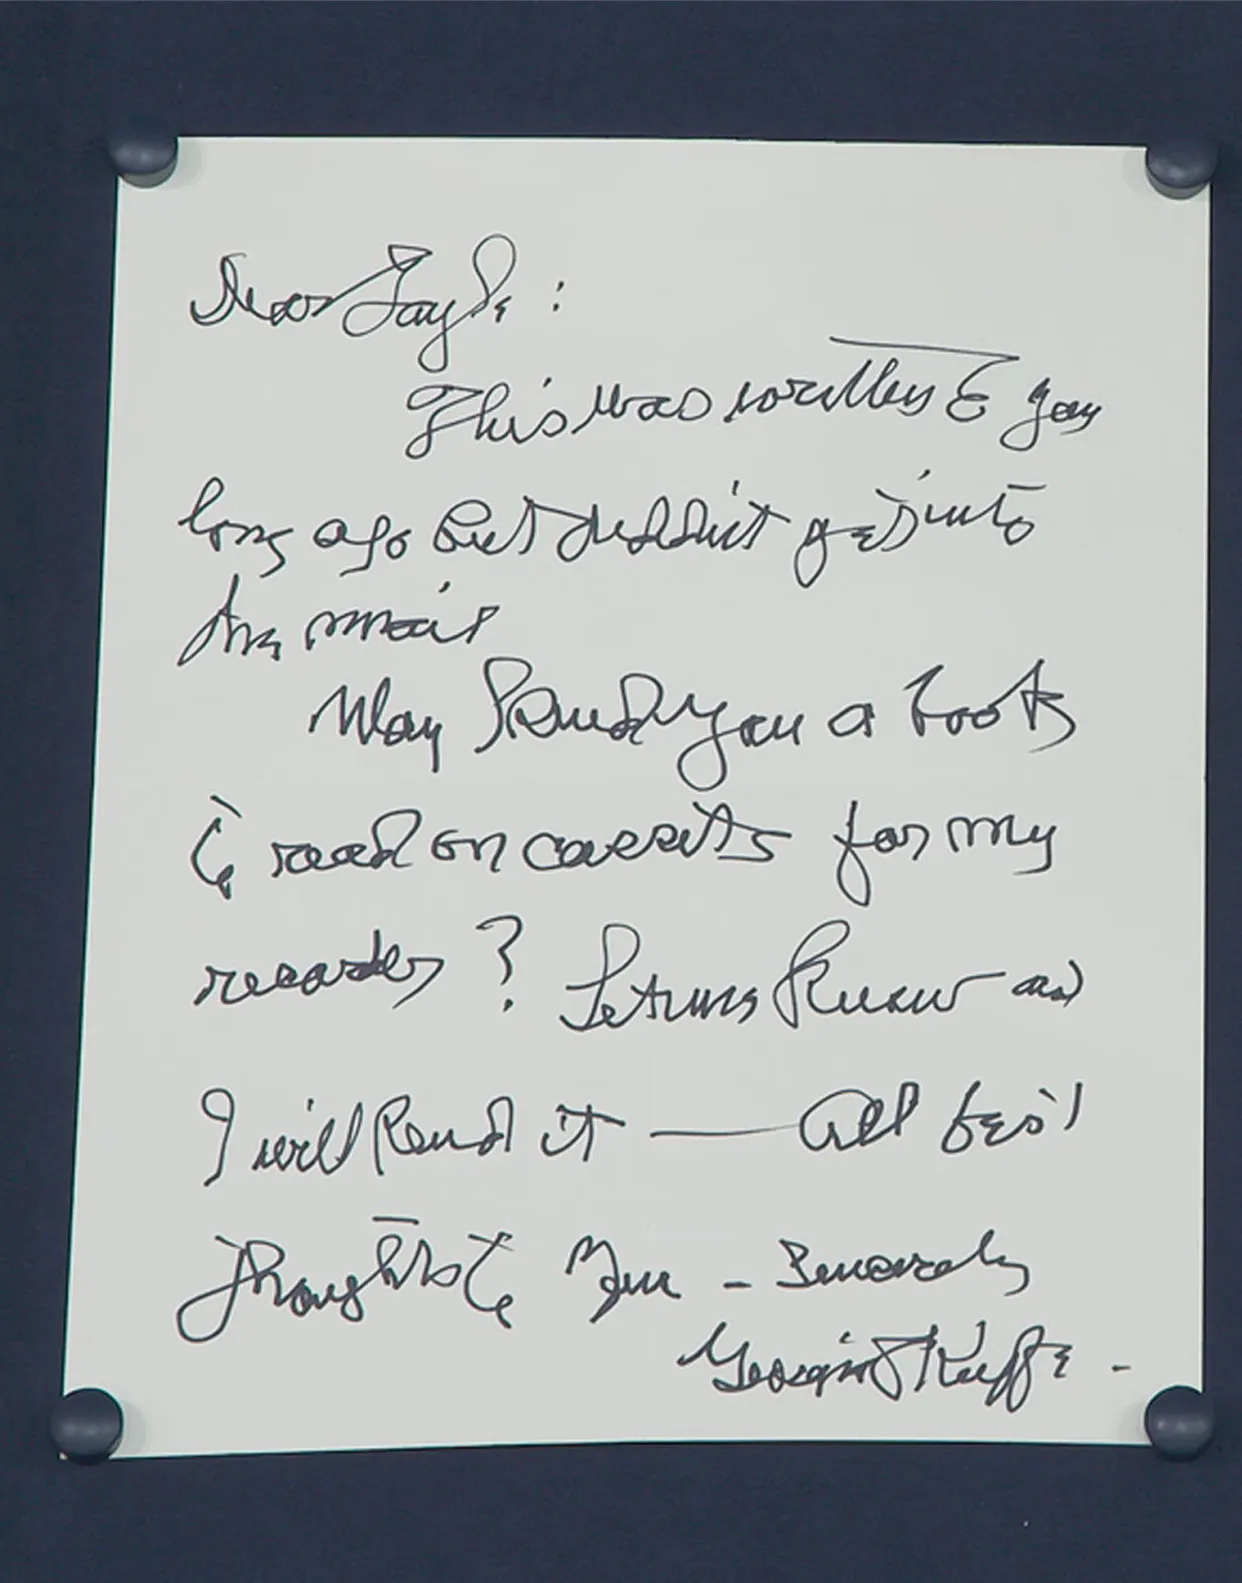 Dear Gayle :
This was written to you
long ago but didn't get into
the mail
May I send you a book
to read on cassette for my
recorder ? Let me know and
I will send it — All best
thoughts to you – Sincerely
Georgia O'Keeffe –